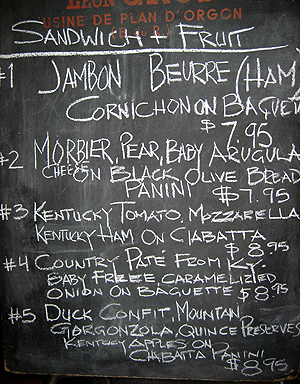 LÉON
USINE DE PLAN D'ORGON
(B. du R.)
SANDWICH + FRUIT
#1 JAMBON BEURRE (HAM
CORNICHON ON BAGUET
$7.95
#2 MORBIER, PEAR, BABY ARUGULA
CHEESE ON BLACK OLIVE BREAD
PANINI $7.95
#3 KENTUCKY TOMATO, MOZZARELLA
KENTUCKY HAM ON CIABATTA
$8.95
#4 COUNTRY PATE FROM KY.
BABY FRLEE, CARAMELIZED
ONION ON BAGUETTE $8.95
#5 DUCK CONFIT, MOUNTAN
GORGONZOLA, QUINCE PRESERVES
KENTUCKY APPLES ON
CIABATTA PANINI
$8.95